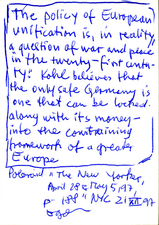 The policy of European
unification is, in reality,
a question of war and peace
in the twenty-first centu-
ry." Kohl believes that
the only safe Germany is
one that can be locked.
along with its money -
into the constraining
framework of a greater
Europe
"The New Yorker,
April 28 & May 5, 97,
p. 188" NYC 21 XII 97